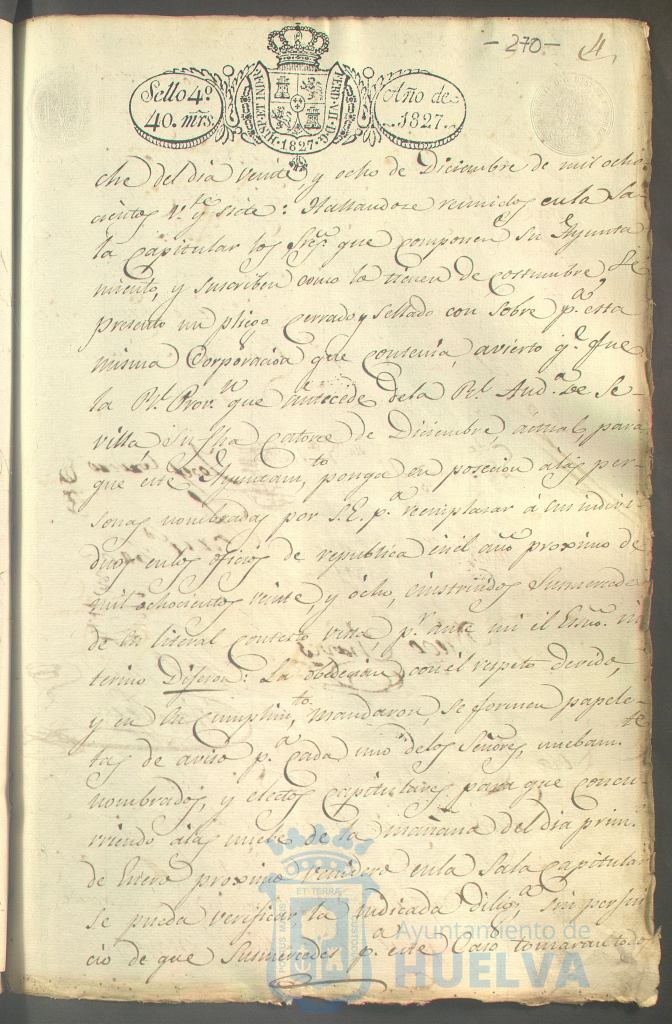 -270- 4
Sello 4º
40. mrs.
HISP. ET IND. R. FERD. VII. D. G. 1827.
Año de
1827.
che del dia veinte, y ocho de Diciembre de mil ocho-
cientos Vte. y siete: Hallandose reunidos en la Sa-
la Capitular los Sres. que componen su Ayunta-
miento, y suscriben como lo tienen de costumbre Se
presento un pliego cerrado y sellado con sobre pa. esta
misma Corporacion que contenia, avierto qe. fue
la Rl. Provn. que antecede de la Rl. Auda. de Se-
villa Su fha catorce de Diciembre, actual, para
que este Ayuntamto. ponga en posecion a las per-
sonas nombradas por S.E. pa. reemplazar á sus indivi-
duos en los oficios de republica en el año proximo de
mil ochocientos veinte, y ocho, é instruidos Susmercedes
de su literal contexto vista pr. ante mi el Esno. in-
terino Dijeron: La obedecian con el respeto devido,
y en su cumplimto. mandaron, se formen papele-
tas de aviso pa. cada uno de los Señores, nuebamte.
nombrados, y electos capitulares para que concu-
rriendo a las nueve de la mañana del dia primo.
de Enero proximo venidero en la Sala capitular
se pueda verificar la indicada dilixa. sin perjui-
cio de que Susmercedes pa. este Caso tomaran todos
PORTUS MARIS ET TERRAE CUSTODIA
Ayuntamiento de
HUELVA